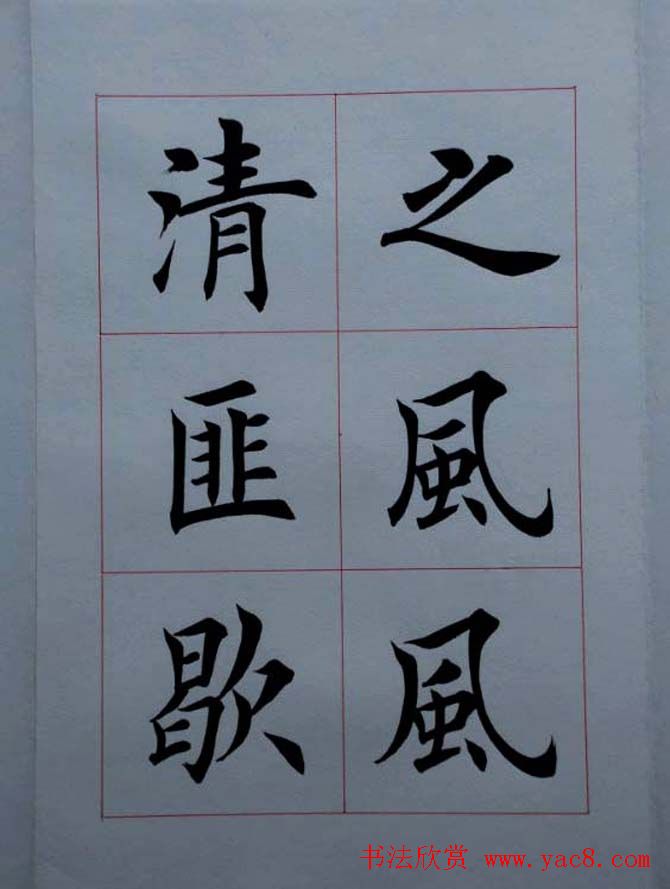 之風風
清匪歇
书法欣赏 www.yac8.com